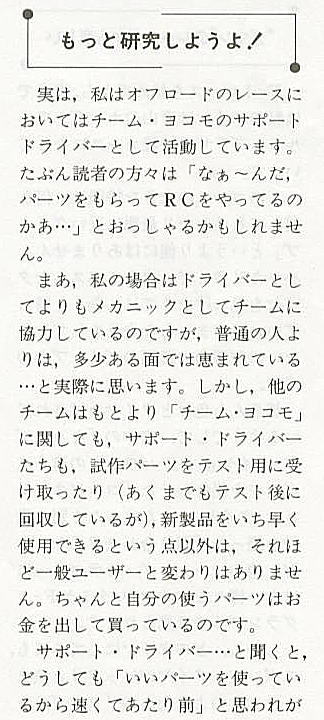 もっと研究しようよ!
実は，私はオフロードのレースに
おいてはチーム・ヨコモのサポート
ドライバーとして活動しています。
たぶん読者の方々は「なぁ〜んだ，
パーツをもらってRCをやってるの
かあ…」とおっしゃるかもしれませ
ん。
まあ，私の場合はドライバーとし
てよりもメカニックとしてチームに
協力しているのですが，普通の人よ
りは，多少ある面では恵まれている
…と実際に思います。しかし，他の
チームはもとより「チーム・ヨコモ」
に関しても，サポート・ドライバー
たちも，試作パーツをテスト用に受
け取ったり（あくまでもテスト後に
回収しているが），新製品をいち早く
使用できるという点以外は，それほ
ど一般ユーザーと変わりはありませ
ん。ちゃんと自分の使うパーツはお
金を出して買っているのです。
サポート・ドライバー…と聞くと，
どうしても「いいパーツを使ってい
るから速くてあたり前」と思われが